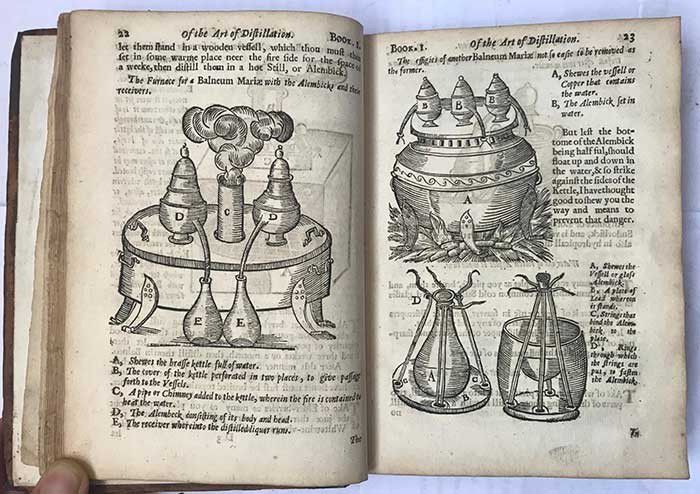 22 Of the Art of Distillation. Book. I.
let them stand in a wooden vessell, which thou must thus
set in some warme place neer the fire side for the space of
a weeke, then distill them in a hot Still, or Alembick.
The Furnace for a Balneum Mariæ with the Alembicks and their
receivers.
D C D
E E
A, Shewes the brasse kettle full of water.
B, The cover of the kettle perforated in two places, to give passage
forth to the Vessels.
C, A pipe or Chimney added to the kettle, wherein the fire is contained to
heat the water.
D, The Alembeck consisting of its body and head.
E, The receiver whereinto the distilled liquor runs.
The
Book. I. Of the Art of Distillation. 23
The effigies of another Balneum Mariæ not so easie to be removed as
the former.
B B B
A
A, Shewes the vessell or
Copper that contains
the water.
B, The Alembick set in
water.
But lest the bot-
tome of the Alembick
being half ful, should
float up and down in
the water, & so strike
against the sides of the
Kettle, I have thought
good to shew you the
way and means to
prevent that danger.
D
A
C C
B
A, Shewes the
Vessell or glass
Alembick.
B, A plate of
Lead whereon
it stands.
C, Strings that
bind the Alem-
bick to the
plate.
D, Rings
through which
the strings are
put, to fasten
the Alembick.